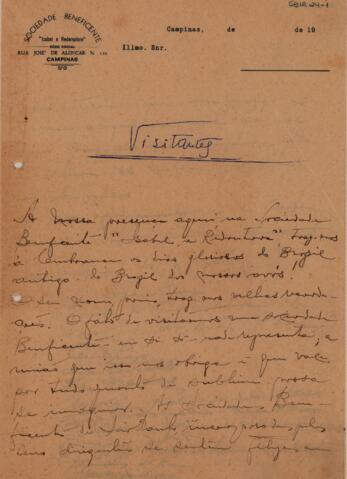 SOCIEDADE BENEFICENTE
"Isabel a Redemptora"
SÉDE SOCIAL
RUA JOSÉ DE ALENCAR N.
CAMPINAS
Campinas, de de 19
Illmo. Snr.
Visitantes
A nossa presença aqui na Sociedade
Beneficente "Isabel, a Redentora" traz-nos
á lembrança os dias gloriosos do Brazil
antigo - do Brazil dos nossos avós!
O seu nome, traz nos velhas
O fato de visitarmos uma sociedade
Beneficente, em si só nada representa, e
mais que isso nos obriga - que vale
por tudo quanto de sublime possa
se imaginar. As sociedades Bene-
ficentes de pelos
seus dirigentes se sentem felizes em